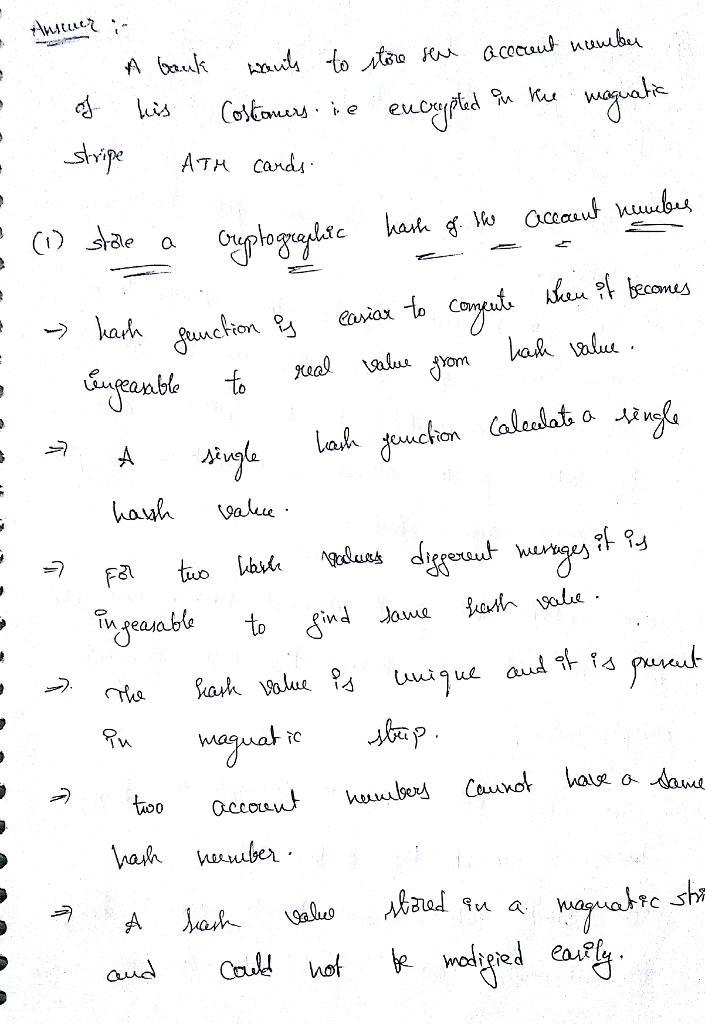 Answer :-
A bank wants to store the account number
of his Costomers. i.e encrypted in the magnatic
stripe ATM cards.
(1) store a cryptographic hash of the account number
→ hash function is easiar to compute when it becomes
infeasable to real value from hash value.
⇒ A single hash function Calculate a single
hash value.
⇒ For two hash values different messages it is
infeasable to find same hash value.
⇒ The hash value is unique and it is present
in magnatic strip.
⇒ two account numbers cannot have a same
hash number.
⇒ A hash value stored in a magnatic stri
and could not be modified easily.